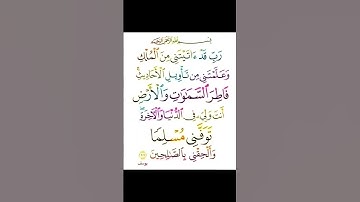 بسم الله الرحمن الرحيم
رَبِّ قَدْ ءَاتَيْتَنِي مِنَ ٱلْمُلْكِ
وَعَلَّمْتَنِي مِن تَأْوِيلِ ٱلْأَحَادِيثِ
فَاطِرَ ٱلسَّمَٰوَٰتِ وَٱلْأَرْضِ
أَنتَ وَلِيِّۦ فِى ٱلدُّنْيَا وَٱلْآخِرَةِ
تَوَفَّنِى مُسْلِمًا
وَأَلْحِقْنِى بِٱلصَّٰلِحِينَ